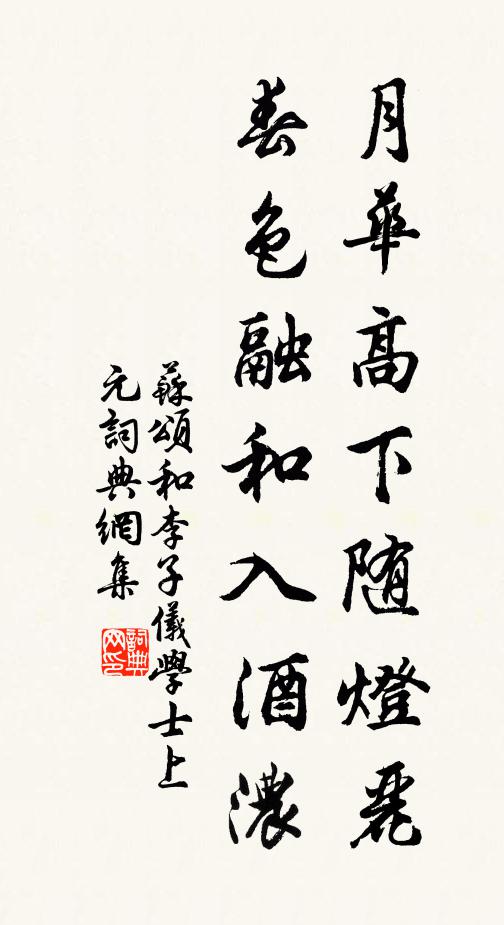 月華高下随燈麗
春色融和入酒濃
蘇頌和李子儀學士上
元詞典網集
詞典
网印